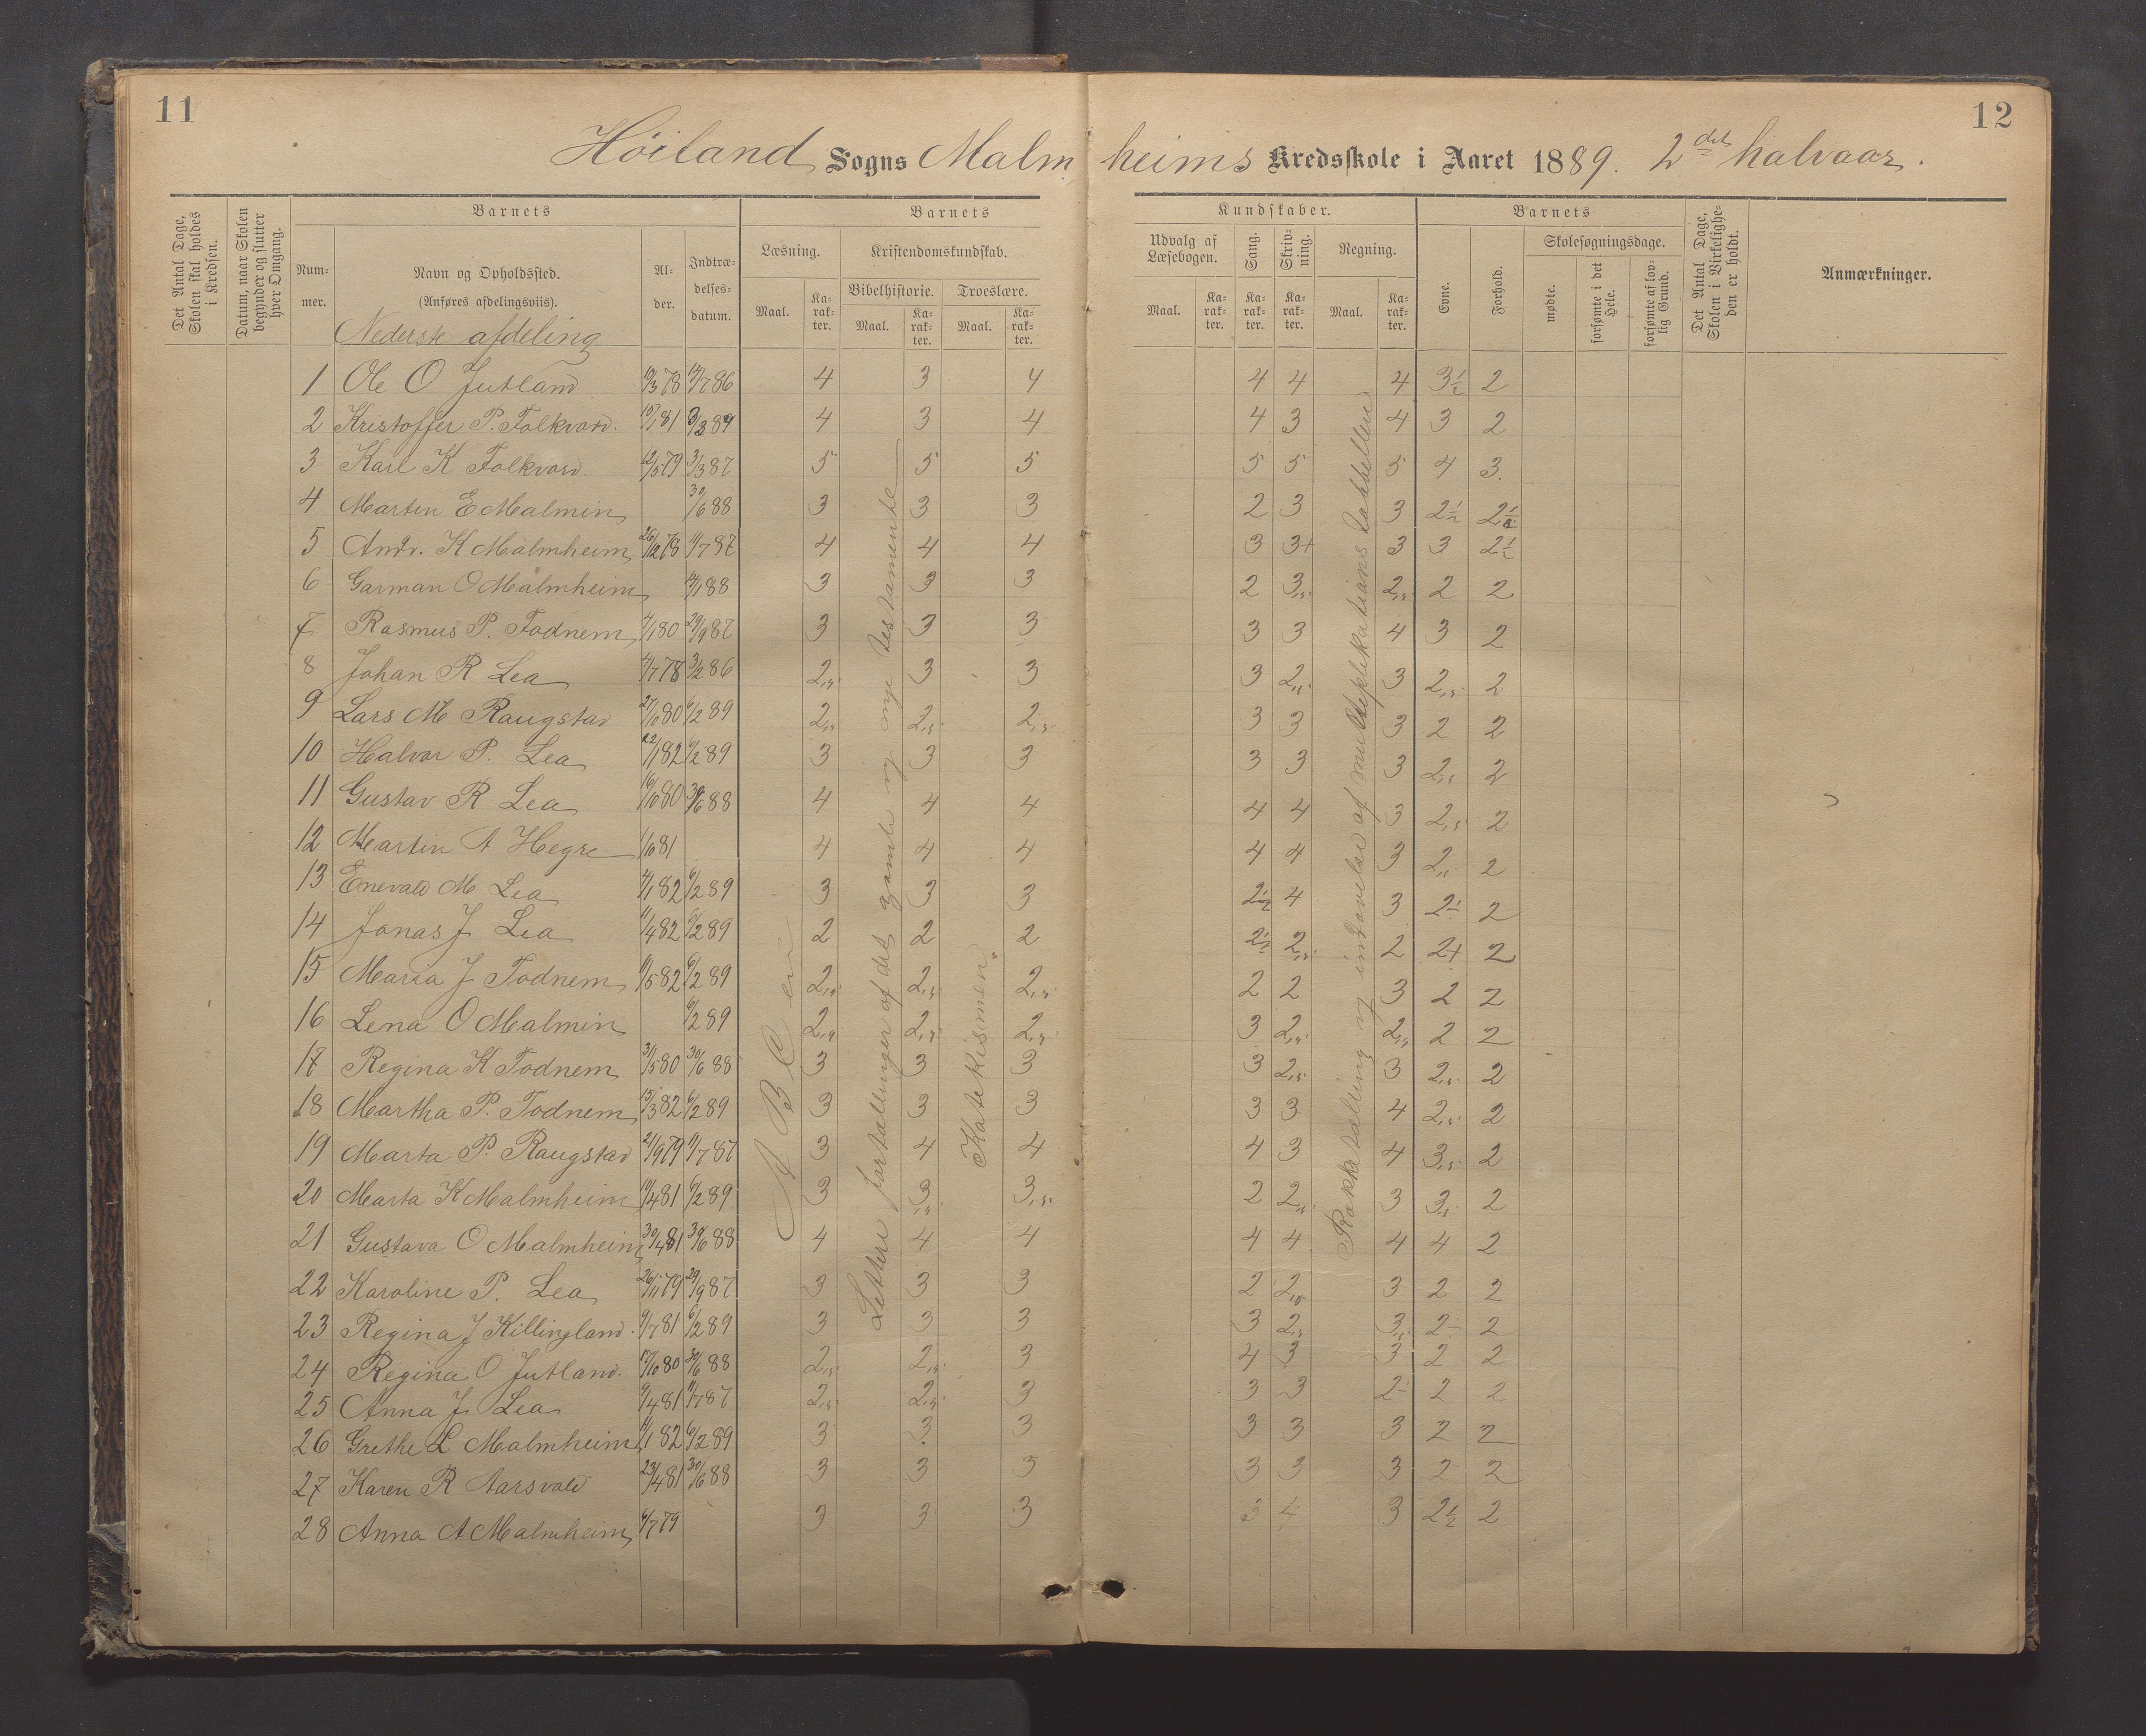 11
12
Höiland Sogns Malmheims Kredsskole i Aaret 1889. 2det halvaar.
Det Antal Dage, Skolen skal holdes i Kredsen.
Datum, naar Skolen begynder og slutter hver Omgang.
Barnets
Nummer.
Navn og Opholdssted.
(Anføres afdelingsviis).
Nederste afdeling
Alder.
Indtrædelsesdatum.
Barnets Kundskaber.
Læsning.
Maal.
Karakter.
Kristendomskundskab.
Bibelhistorie.
Maal.
Karakter.
Troeslære.
Maal.
Karakter.
Udvalg af Læsebogen.
Maal.
Karakter.
Sang.
Karakter.
Skrivning.
Karakter.
Regning.
Maal.
Karakter.
Barnets
Evne.
Forhold.
Skolesøgningsdage.
mødte.
forsømte i det Hele.
forsømte af lovlig Grund.
Det Antal Dage, Skolen i Virkeligheden er holdt.
Anmærkninger.
1 Ole O Jutland 19/3 78 12/7 86 4 3 4 4 4 4 3½ 2
2 Kristoffer P. Folkvord. 15/1 81 3/3 89 4 3 4 4 3 4 3 2
3 Karl K Folkvord. 12/5 79 3/3 87 5 5 5 5 5 5 4 3.
4 Martin E Malmin 30/6 88 3 3 3 2 3 3 2½ 2½
5 Andr. K Malmheim 26/12 78 11/7 87 4 4 4 3 3+ 3 3 2½
6 Garman O Malmheim 14/1 88 3 3 3 2 3,5 2,5 2 2
7 Rasmus P. Todnem 4/1 80 29/9 87 3 3 3 3 3 4 3 2
8 Johan R Lea 4/7 78 3/2 86 2,5 3 3 3 2,5 3 2,5 2
9 Lars M Raugstad 27/10 80 6/2 89 2,5 2,5 2,5 3 3 3 2 2
10 Halvor P. Lea 22/1 82 6/2 89 3 3 3 3 3 3 2,5 2
11 Gustav R Lea 16/10 80 30/6 88 4 4 4 4 4 3 2,5 2
12 Martin A Hegre 1/10 81 4 4 4 4 4 3 2,5 2
13 Enevald M Lea 4/1 82 6/2 89 3 3 3 2½ 4 3 2½ 2
14 Jonas J Lea 11/4 82 6/2 89 2 2 2 2½ 2,5 2 2+ 2
15 Maria J Todnem 11/5 82 6/2 89 2,5 2,5 2,5 2 2 3 2 2
16 Lena O Malmin 6/2 89 2,5 2,5 2,5 3 2,5 2,5 2 2
17 Regina K Todnem 31/5 80 30/6 88 3 3 3 3 2,5 3 2,5 2
18 Martha P. Todnem 15/3 82 6/2 89 3 3 3 3 3 4 2,5 2
19 Marta P. Raugstad 21/9 79 11/7 87 3 4 4 4 3 4 3,5 2
20 Marta K Malmheim 19/4 81 6/2 89 3 3,5 3,5 2 2,5 3 3,5 2
21 Gustava O Malmheim 30/4 81 30/6 88 4 4 4 4 4 4 4 2
22 Karoline P. Lea 26/11 79 29/9 87 3 3 3 2 2,5 3 2 2
23 Regina J Killingland. 9/7 81 6/2 89 3 3 3 3 2,5 3,5 2 2
24 Regina O Jutland. 17/10 80 30/6 88 2,5 2,5 3 4 3 3 2 2
25 Anna J. Lea 9/4 81 11/7 87 2,5 2,5 3 3 3 2 2 2
26 Grethe L Malmheim 11/1 82 6/2 89 3 3 3 3 3 3 2 2
27 Karen R Aarsvold 23/4 81 30/6 88 3 3 3 3 3 3 2 2
28 Anna A Malmheim 6/7 79 3 3 3 3 4 3 2½ 2
A B C en
Lettere fortællinger af det gamle og nye testamente
Katekismen.